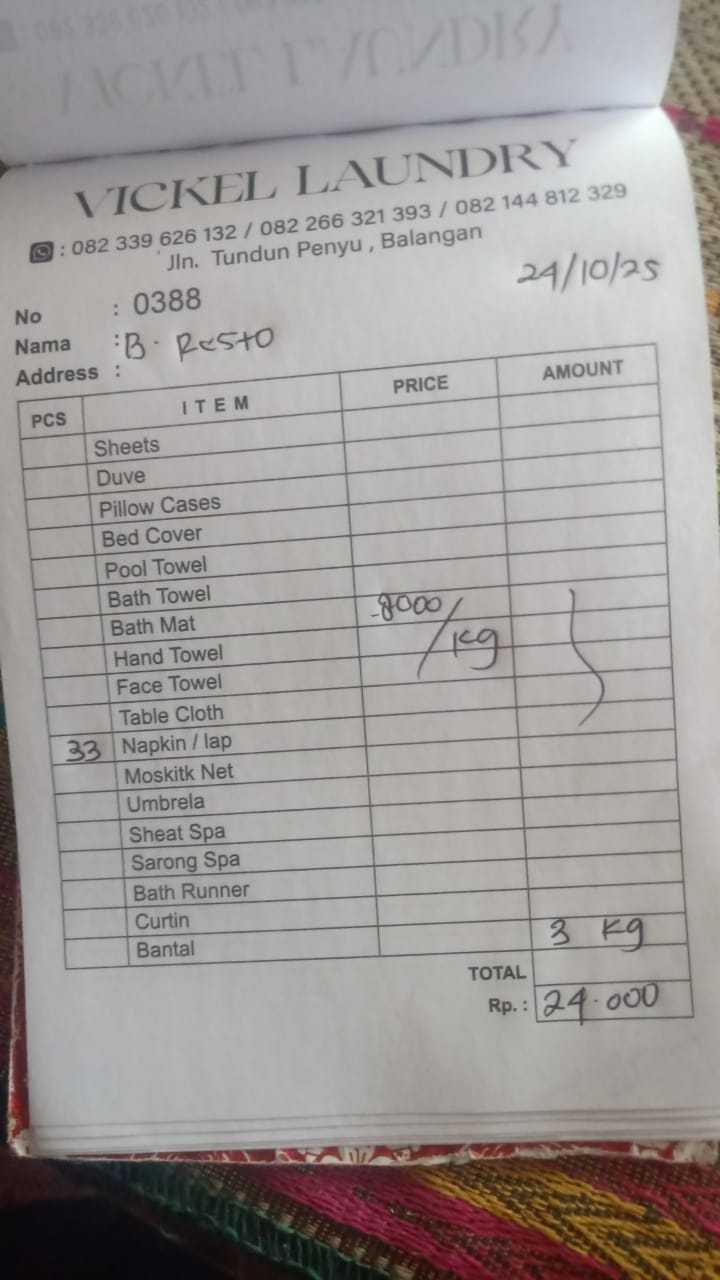 VICKEL LAUNDRY
: 082 339 626 132 / 082 266 321 393 / 082 144 812 329
Jln. Tundun Penyu , Balangan
24/10/25
No : 0388
Nama : B. Resto
Address :
PCS ITEM PRICE AMOUNT
Sheets
Duve
Pillow Cases
Bed Cover
Pool Towel
Bath Towel
Bath Mat 8000/kg
Hand Towel
Face Towel
Table Cloth
33 Napkin / lap
Moskitk Net
Umbrela
Sheat Spa
Sarong Spa
Bath Runner
Curtin 3 kg
Bantal
TOTAL
Rp. : 24.000